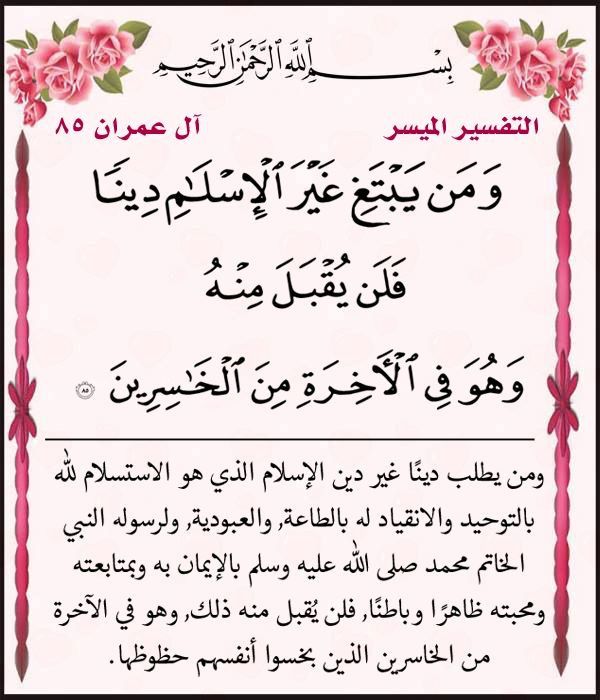 بِسْمِ ٱللَّهِ ٱلرَّحْمَٰنِ ٱلرَّحِيمِ
التفسير الميسر آل عمران ٨٥
وَمَن يَبْتَغِ غَيْرَ ٱلْإِسْلَٰمِ دِينًا
فَلَن يُقْبَلَ مِنْهُ
وَهُوَ فِى ٱلْأَخِرَةِ مِنَ ٱلْخَٰسِرِينَ ٨٥
ومن يطلب دينًا غير دين الإسلام الذي هو الاستسلام لله
بالتوحيد والانقياد له بالطاعة, والعبودية, ولرسوله النبي
الخاتم محمد صلى الله عليه وسلم بالإيمان به وبمتابعته
ومحبته ظاهرًا وباطنًا, فلن يُقبل منه ذلك, وهو في الآخرة
من الخاسرين الذين بخسوا أنفسهم حظوظها.